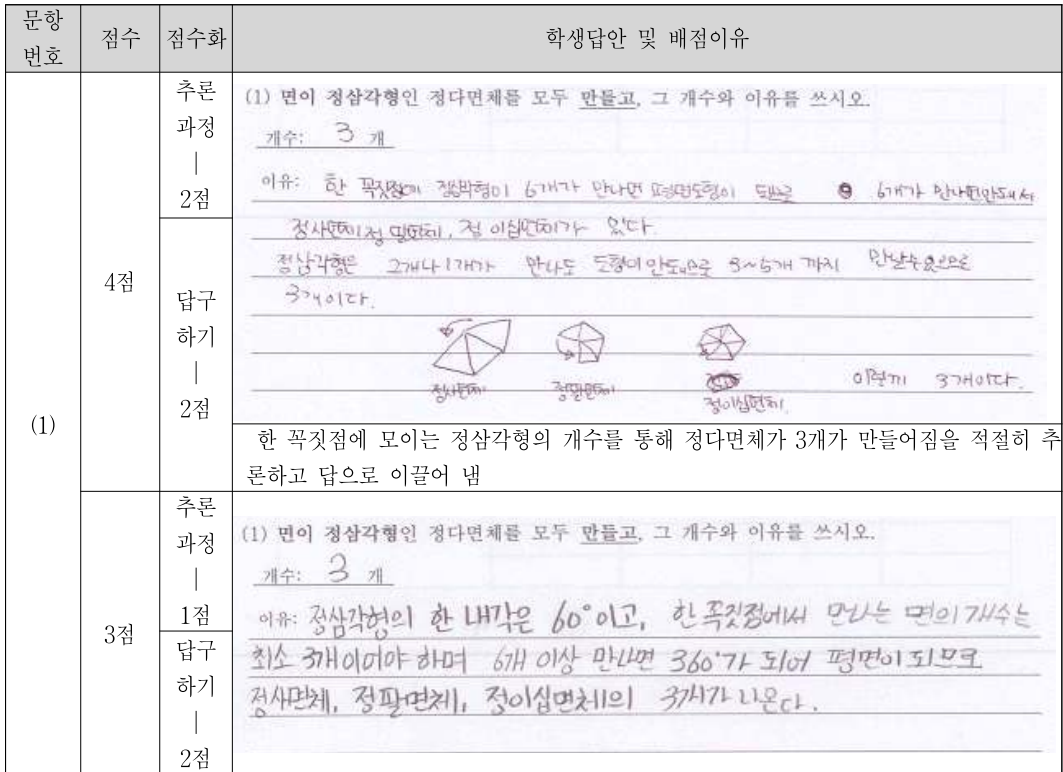 문항
번호
점수
점수화
학생답안 및 배점이유
(1)
4점
추론
과정
|
2점
답구
하기
|
2점
(1) 면이 정삼각형인 정다면체를 모두 만들고, 그 개수와 이유를 쓰시오.
개수: 3 개
이유: 한 꼭짓점에 정삼각형이 6개가 만나면 평면도형이 되므로 6개가 만나면안돼서
정사면체, 정팔면체, 정이십면체가 있다.
정삼각형은 2개나 1개가 만나도 도형이 안되므로 3~5개 까지 만날수있으므로
3개이다.
정사면체 정팔면체 정이십면체 이렇게 3개이다.
한 꼭짓점에 모이는 정삼각형의 개수를 통해 정다면체가 3개가 만들어짐을 적절히 추
론하고 답으로 이끌어 냄
3점
추론
과정
|
1점
답구
하기
|
2점
(1) 면이 정삼각형인 정다면체를 모두 만들고, 그 개수와 이유를 쓰시오.
개수: 3 개
이유: 정삼각형의 한 내각은 60°이고, 한 꼭짓점에서 만나는 면의 개수는
최소 3개이어야 하며 6개 이상 만나면 360°가 되어 평면이 되므로
정사면체, 정팔면체, 정이십면체의 3개가 나온다.